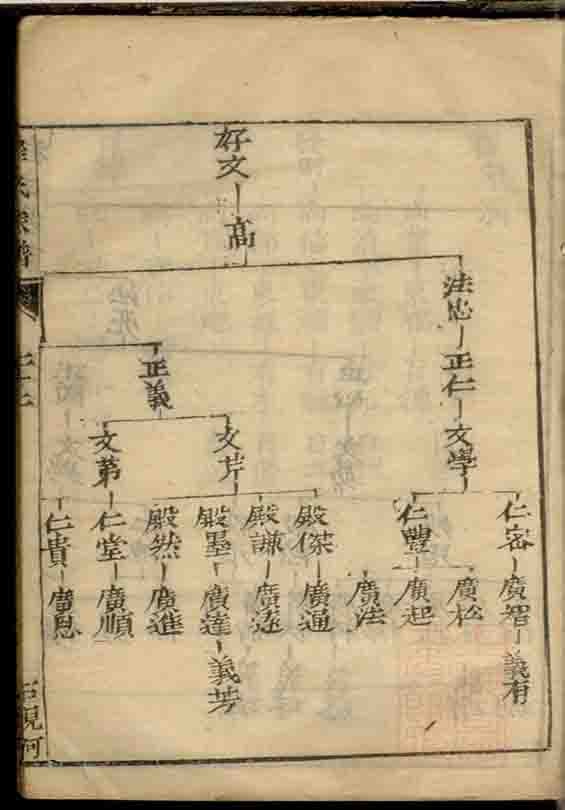 好文
高
法忠
正仁
文學
仁密
廣智
義有
廣松
仁豐
廣起
廣法
正義
文芹
殿傑
廣通
殿謙
廣遜
殿墨
廣達
義芳
殿然
廣進
文第
仁堂
廣順
仁貴
廣恩
氏宗譜
石硯河